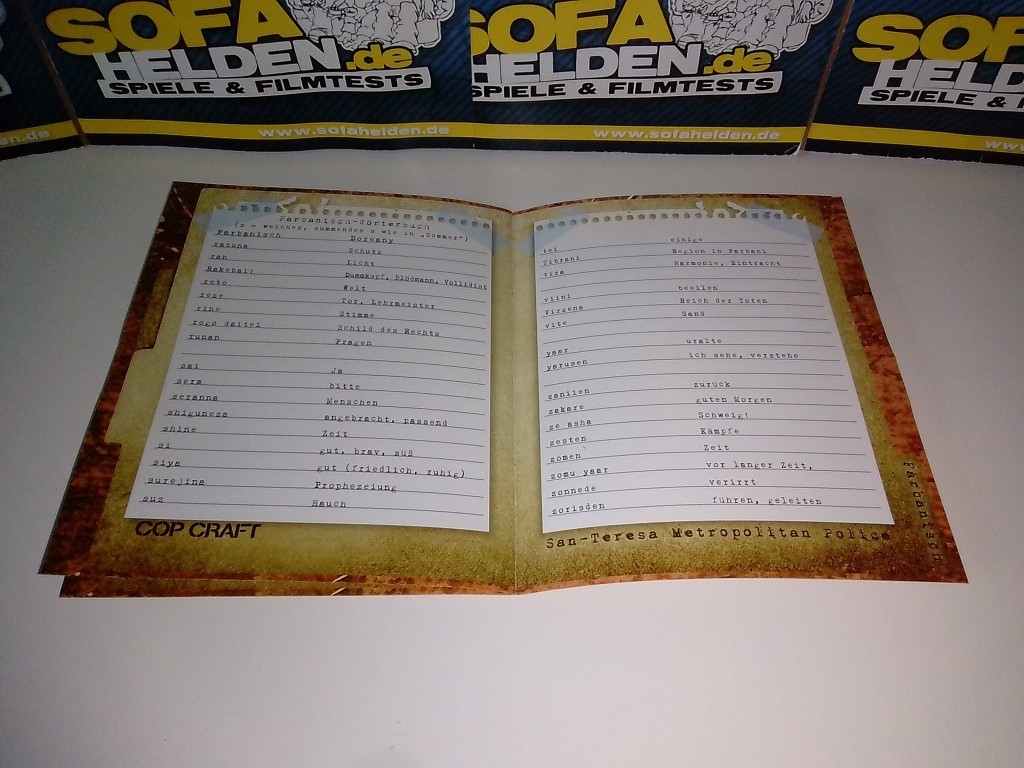 SOFA
HELDEN.de
SPIELE & FILMTESTS
www.sofahelden.de
SOFA
HELDEN.de
SPIELE & FILMTESTS
www.sofahelden.de
SOF
HELDEN
SPIELE &
www.
de
Farbanisch-Wörterbuch
(z = weiches, summendes s wie in „Sommer")
Farbanisch Doreany
rabuna Schutz
ran Licht
Rakebai! Dummkopf, Blödmann, Vollidiot
reto Welt
reze Tor, Lehrmeister
rine Stimme
rogo daitei Schild des Rechts
runan Fragen
sai Ja
sera bitte
seranna Menschen
shiguneza angebracht, passend
shine Zeit
si gut, brav, süß
siya gut (friedlich, ruhig)
surejina Prophezeiung
suz Hauch
COP CRAFT
tei einige
Tibrani Region in Farbani
tira Harmonie, Eintracht
viini beeilen
Virzena Reich der Toten
vite Sand
yaar uralte
yarusen ich sehe, verstehe
zaniien zurück
zakare guten Morgen
ze asha Schweig!
zesten Kämpfe
zomen Zeit
zomu yaar vor langer Zeit,
zonnede verirrt
zorisden führen, geleiten
San-Teresa Metropolitan Police
Farbanisch